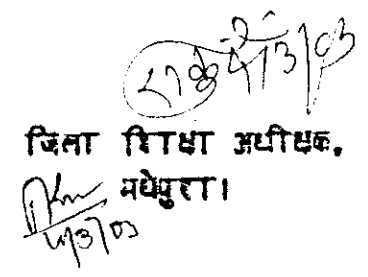 4/3/03
जिला शिक्षा अधीक्षक,
मधेपुरा।
4/3/03